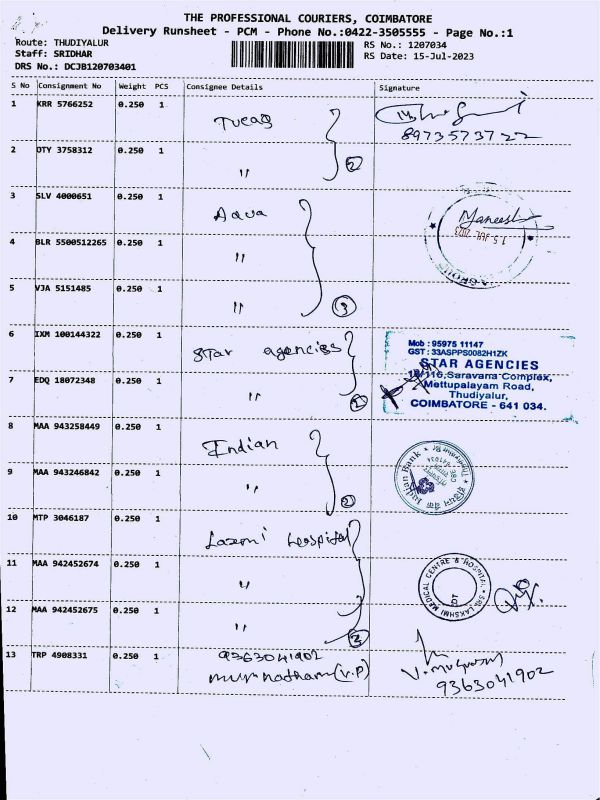 THE PROFESSIONAL COURIERS, COIMBATORE
Delivery Runsheet - PCM - Phone No.:0422-3505555 - Page No.:1
Route: THUDIYALUR RS No.: 1207034
Staff: SRIDHAR RS Date: 15-Jul-2023
DRS No.: DCJB120703401
S No Consignment No Weight PCS Consignee Details Signature
1 KRR 5766252 0.250 1
8973573722
2 OTY 3758312 0.250 1 " 2
3 SLV 4000651 0.250 1 Aqua Maneesh
15 JUL 2023
4 BLR 5500512265 0.250 1 "
5 VJA 5151485 0.250 1 " 3
6 IXM 100144322 0.250 1 Star agencies
Mob : 95975 11147
GST : 33ASPPS0082H1ZK
STAR AGENCIES
Saravana Complex,
Mettupalayam Road,
Thudiyalur,
COIMBATORE - 641 034.
7 EDQ 18072348 0.250 1 " 2
8 MAA 943258449 0.250 1 Indian
Indian Bank
9 MAA 943246842 0.250 1 " 2
10 MTP 3046187 0.250 1 Laxmi hospital
11 MAA 942452674 0.250 1 "
SRI LAKSHMI MEDICAL CENTRE & HOSPITAL
12 MAA 942452675 0.250 1 " 2
13 TRP 4908331 0.250 1 9363041902
(V.P)
9363041902